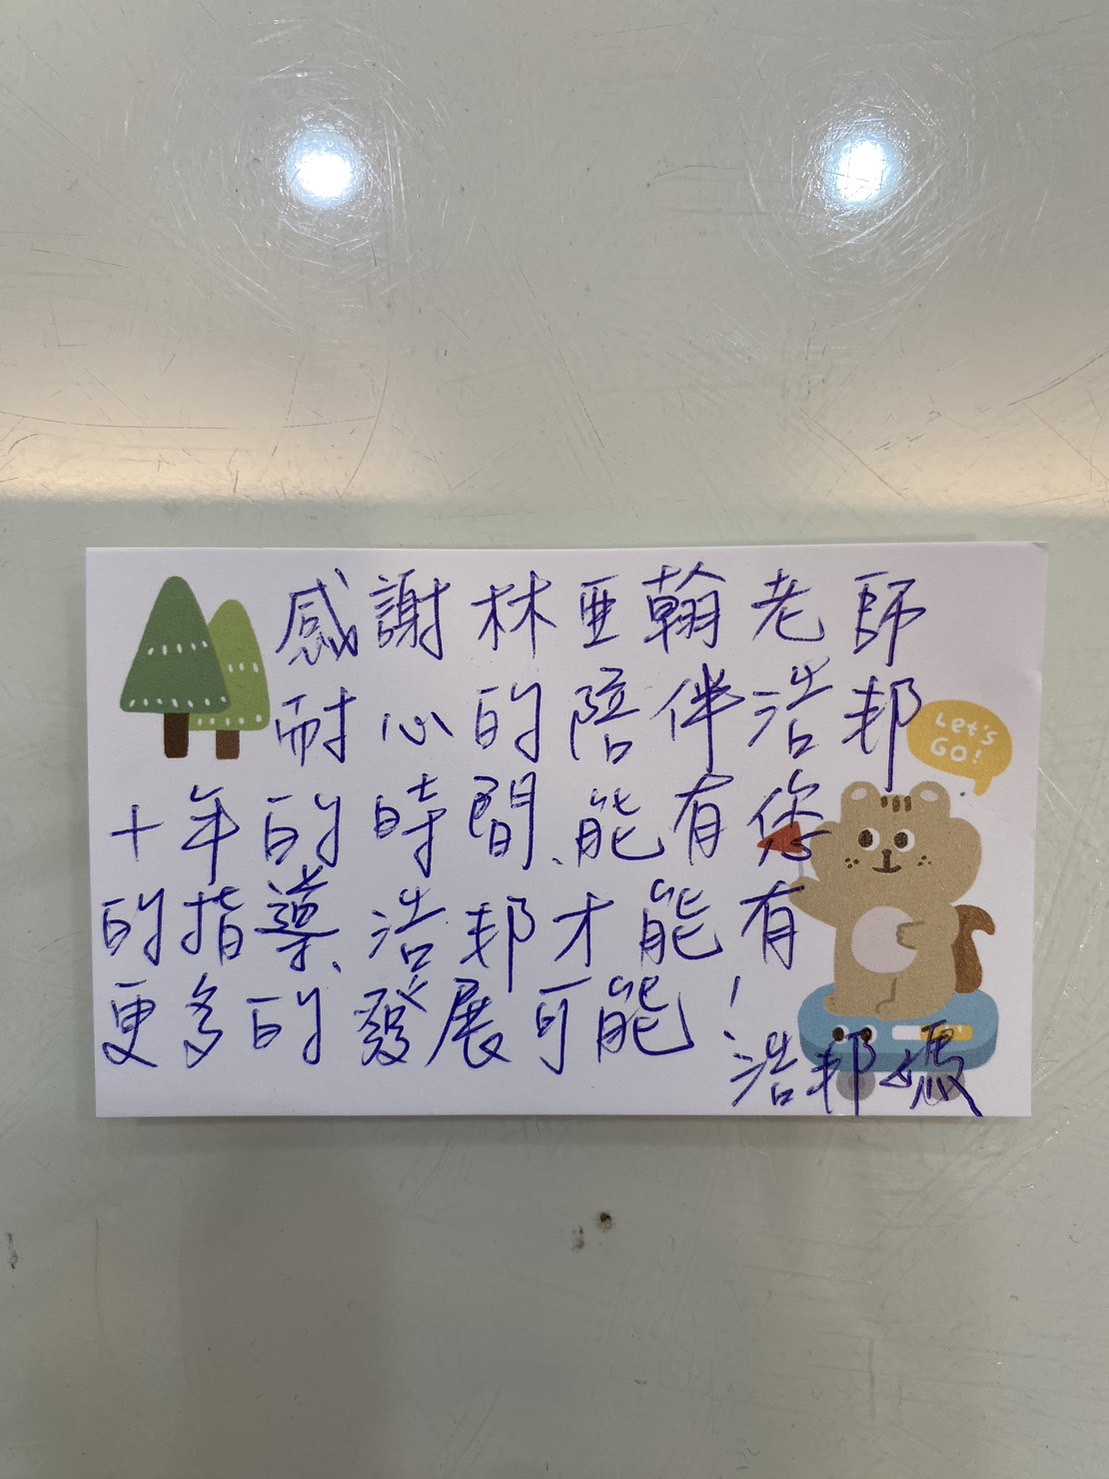 感謝林亜翰老師
耐心的陪伴浩邦
Let's
GO!
十年的時間、能有您
的指導、浩邦才能有
更多的發展可能!
浩邦媽